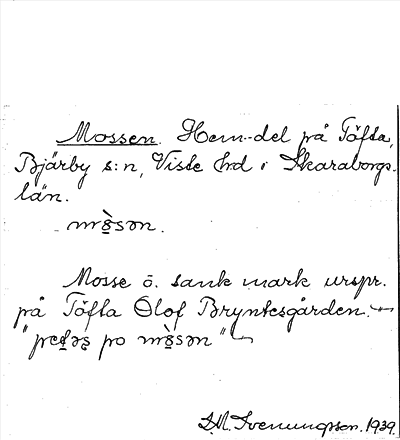 Mossen. Hem-del på Töfta,
Bjärby s:n, Viste hd i Skaraborgs.
län.
mo̠̊sən.
Mosse o. sank mark urspr.
på Töfta Olof Bryntesgården.
po mo̠̊sən"
D.M. Svenungsson. 1939.